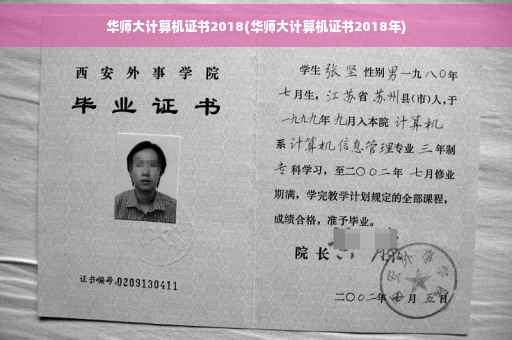 华师大计算机证书2018(华师大计算机证书2018年)
西安外事学院
毕业证书
证书编号:0209130411
学生张坚性别男一九八〇年
七月生,江苏省苏州县(市)人,于
一九九九年九月入本院计算机
系计算机信息管理专业三年制
专科学习,至二〇〇二年七月修业
期满,学完教学计划规定的全部课程,
成绩合格,准予毕业。
院长
二〇〇二年 月五日